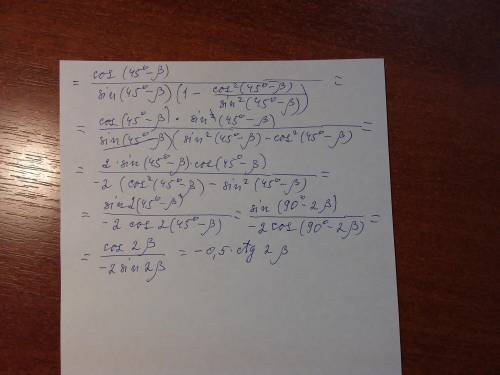 = cos (45° - β) / sin (45° - β) (1 - cos²(45° - β) / sin²(45° - β)) =
= cos (45° - β) · sin² (45° - β) / sin (45° - β) (sin² (45° - β) - cos² (45° - β) =
= 2 · sin (45° - β) · cos (45° - β) / -2 (cos² (45° - β) - sin² (45° - β) =
= sin 2 (45° - β) / -2 cos 2 (45° - β) = sin (90° - 2β) / -2 cos (90° - 2β) =
= cos 2β / -2 sin 2β = -0,5 · ctg 2β